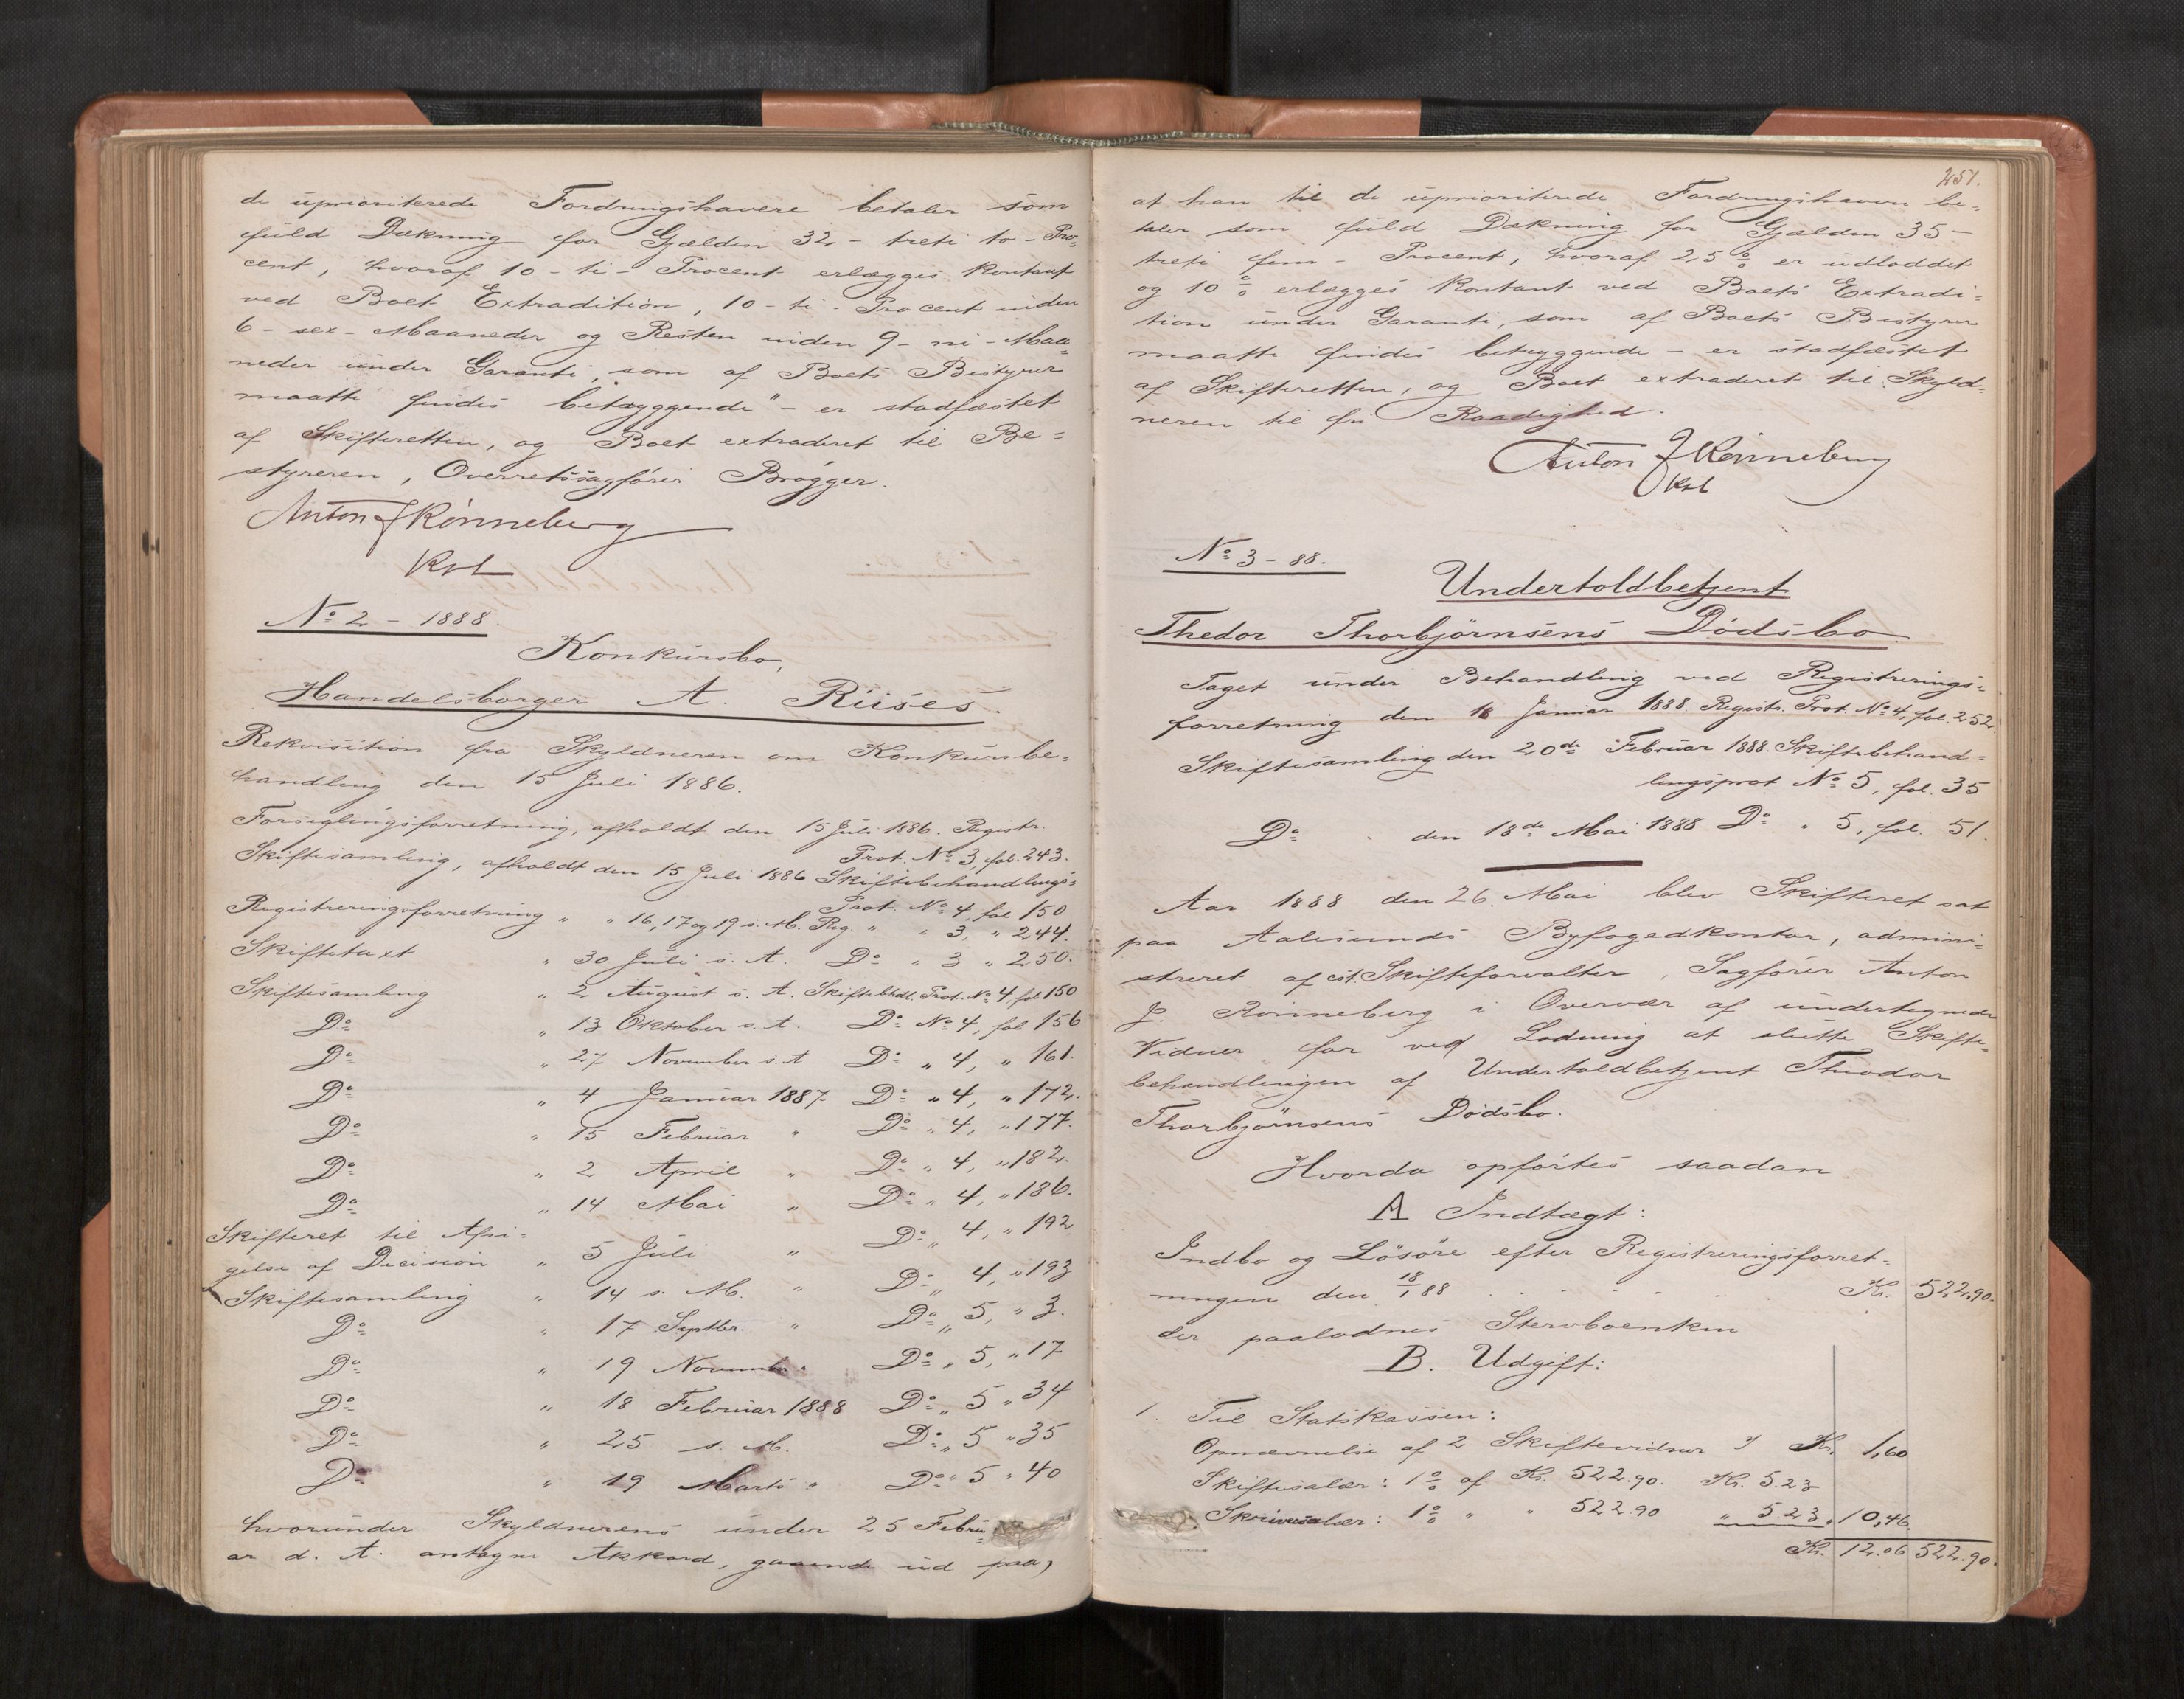 de uprioriterede Fordringshavere betaler som
fuld Dækning for Gjælden 32 - treti to - Pro-
cent, hvoraf 10 - ti - Procent erlægges kontant
ved Boets Extradition, 10 - ti - Procent inden
6 - sex - Maaneder og Resten inden 9 - ni - Maa-
neder under Garanti, som af Boets Bestyrer
maatte findes betryggende" - er stadfæstet
af Skifteretten, og Boet extraderet til Be-
styreren, Overretssagfører Brøgger.
Anton J Rønneberg
Kst
No 2 - 1888.
Konkursbo,
Handelsborger A. Riises.
Rekvisition fra Skyldneren om Konkursbe-
handling den 15 Juli 1886.
Forseglingsforretning, afholdt den 15 Juli 1886. Registr.
Prot. No 3, fol. 243.
Skiftesamling, afholdt den 15 Juli 1886 Skiftebehandlings-
Prot. No 4, fol 150
Registreringsforretning " " 16, 17 og 19 s. M. Reg. " " 3, " 244.
Skiftetaxt " 30 Juli s. A. Do " 3 " 250.
Skiftesamling " 2 August s. A. Skiftebhdl. Prot. No 4, fol 150
Do " 13 Oktober s. A. Do No 4, fol 156
Do " 27 November s. A Do " 4, " 161.
Do " 4 Januar 1887 Do " 4, " 172.
Do " 15 Februar " Do " 4, " 177.
Do " 2 April " Do " 4, " 182.
Do " 14 Mai " Do " 4, " 186.
Skifteret til Afsi-
gelse af Decision " 5 Juli " Do " 4, " 192
Skiftesamling " 14 s. M. " Do " 4, " 193
Do " 17 Septbr. " Do " 5, " 3.
Do " 19 November " Do " 5, " 17
Do " 18 Februar 1888 Do " 5 " 34
Do " 25 s. M. Do " 5 " 35
Do " 19 Marts " Do " 5 " 40
hvorunder Skyldnerens under 25 Febru-
ar d. A. antagne Akkord, gaaende ud paa,
251.
at han til de uprioriterede Fordringshavere be-
taler som fuld Dækning for Gjælden 35 -
treti fem - Procent, hvoraf 25 % er udloddet
og 10 % erlægges kontant ved Boets Extradi-
tion under Garanti, som af Boets Bestyrer
maatte findes betryggende - er stadfæstet
af Skifteretten, og Boet extraderet til Skyld-
neren til fri Raadighed.
Anton J Rønneberg
Kst
No 3 - 88.
Undertoldbetjent
Thedor Thorbjørnsens Dødsbo
Taget under Behandling ved Registrerings-
forretning den Januar 1888. Registr. Prot. No 4, fol. 252
Skiftesamling den 20de Februar 1888. Skiftebehand-
lingsprot No 5, fol. 35
Do den 18de Mai 1888 Do " 5, fol. 51.
Aar 1888 den 26. Mai blev Skifteret sat
paa Aalesunds Byfogedkontor, admini-
streret af cst. Skifteforvalter, Sagfører Anton
J. Rønneberg i Overvær af undertegnede
Vidner for ved Lodning at slutte Skifte-
behandlingen af Undertoldbetjent Theodor
Thorbjørnsens Dødsbo.
Hvorda opførtes saadan
A Indtægt:
Indbo og Løsøre efter Registreringsforret-
ningen den 18/1 88 . . . . . Kr. 522.90.
der paalodnes Stervboenken
B. Udgift:
1. Til Statskassen:
Opnævnelse af 2 Skiftevidner Kr. 1,60
Skiftesalær: 1 % af Kr. 522.90. Kr. 5.23
Skriversalær: 1 % " " 522.90 " 5.23. 10,46.
Kr. 12.06 522.90.